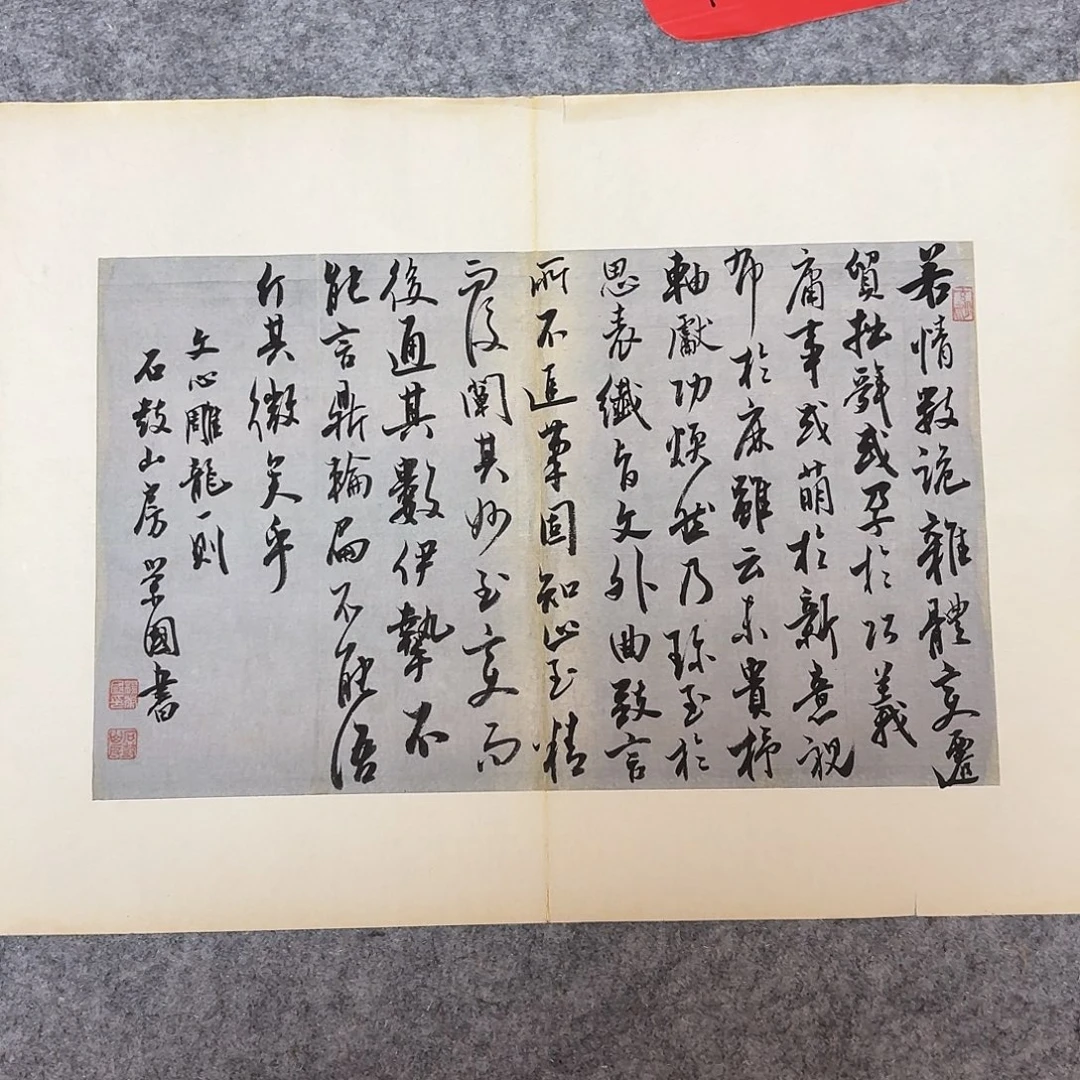 若情數詭雜體變遷
貿拙辭或孕於巧義
庸事或萌於新意視
布於麻雖云未貴杼
軸獻功煥然乃珍至於
思表纖旨文外曲致言
所不追筆固知止至精
而後闡其妙至變而
後通其數伊摯不
能言鼎輪扁不能語
斤其微矣乎
文心雕龍一則
石鼓山房榮國書